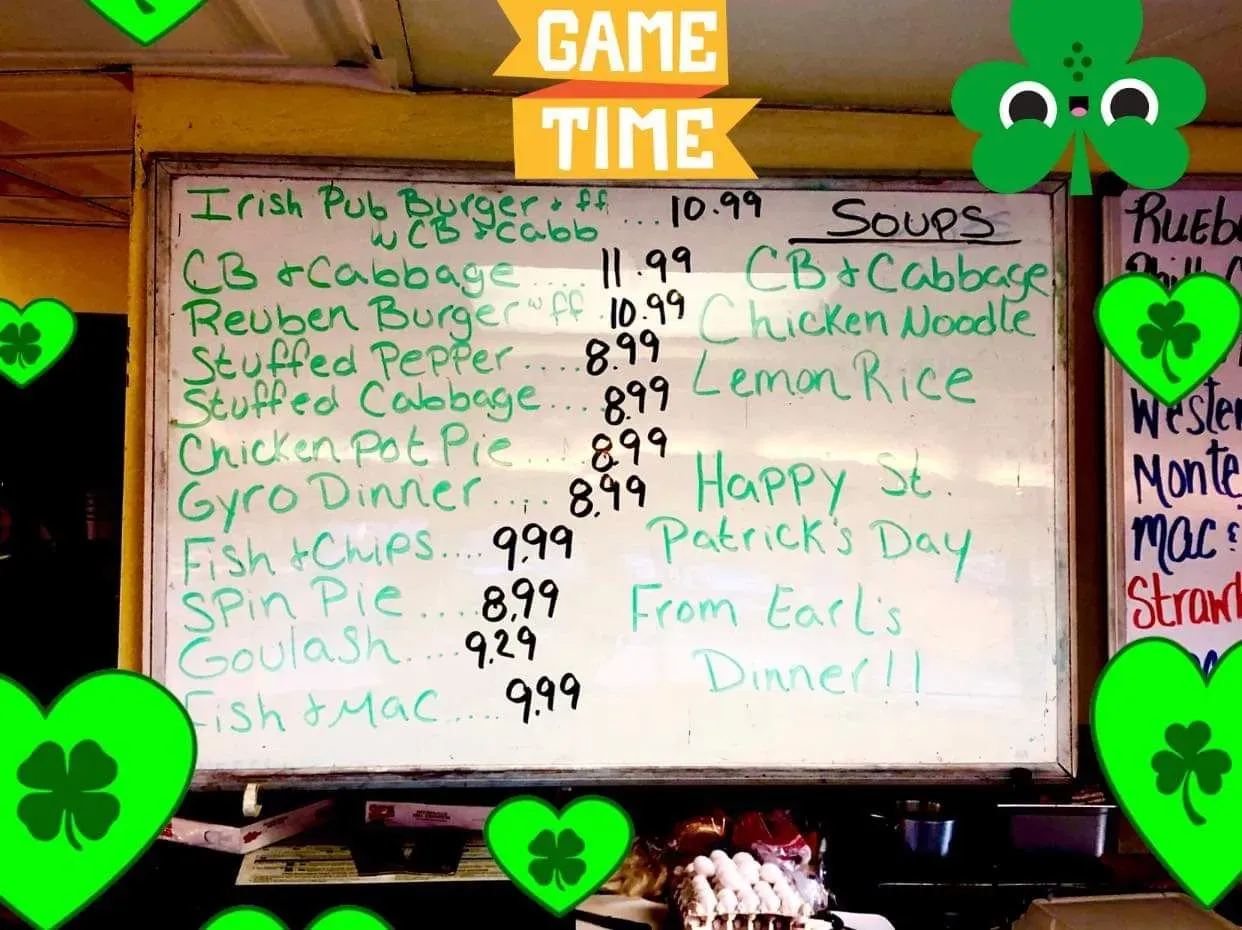 GAME
TIME
Irish Pub Burger + ff ... 10.99
w CB & Cabb
CB & Cabbage .... 11.99
Reuben Burger w ff . 10.99
Stuffed Pepper .... 8.99
Stuffed Cabbage ... 8.99
Chicken Pot Pie .... 8.99
Gyro Dinner .... 8.99
Fish & Chips .... 9.99
Spin Pie .... 8.99
Goulash .... 9.29
Fish & Mac .... 9.99
Soups
CB & Cabbage
Chicken Noodle
Lemon Rice
Happy St.
Patrick's Day
From Earl's
Dinner!!
Rueb
Weste
Monte
Mac &
Straw